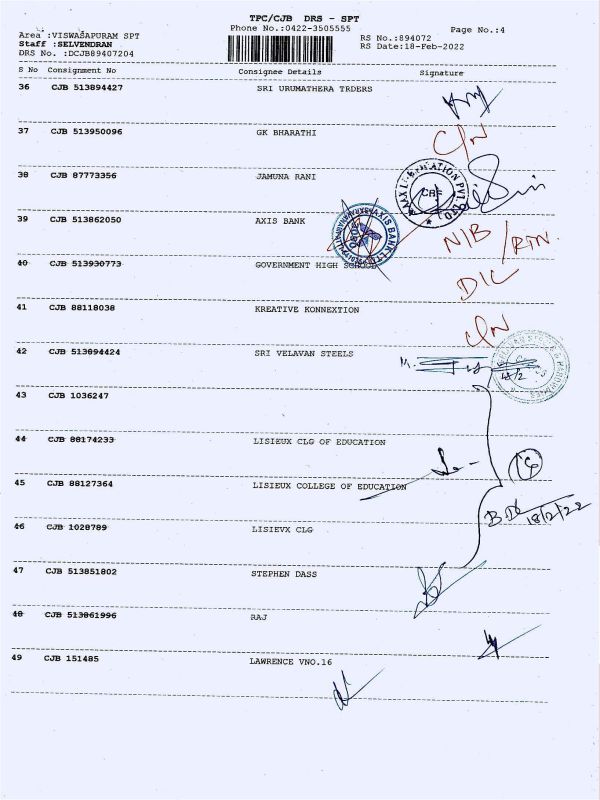 TPC/CJB DRS - SPT
Phone No.:0422-3505555
Page No.:4
Area :VISWASAPURAM SPT
RS No.:894072
Staff :SELVENDRAN
RS Date:18-Feb-2022
DRS No. :DCJB89407204
S No Consignment No Consignee Details Signature
36 CJB 513894427 SRI URUMATHERA TRDERS
37 CJB 513950096 GK BHARATHI
C/N
38 CJB 87773356 JAMUNA RANI
CBE
39 CJB 513862050 AXIS BANK
AXIS BANK LTD
N/B / RTN.
40 CJB 513930773 GOVERNMENT HIGH SCHOOL
D/L
41 CJB 88118038 KREATIVE KONNEXTION
C/N
42 CJB 513894424 SRI VELAVAN STEELS
18/2
43 CJB 1036247
44 CJB 88174233 LISIEUX CLG OF EDUCATION
45 CJB 88127364 LISIEUX COLLEGE OF EDUCATION
18/2/22
46 CJB 1028789 LISIEVX CLG
47 CJB 513851802 STEPHEN DASS
48 CJB 513861996 RAJ
49 CJB 151485 LAWRENCE VNO.16